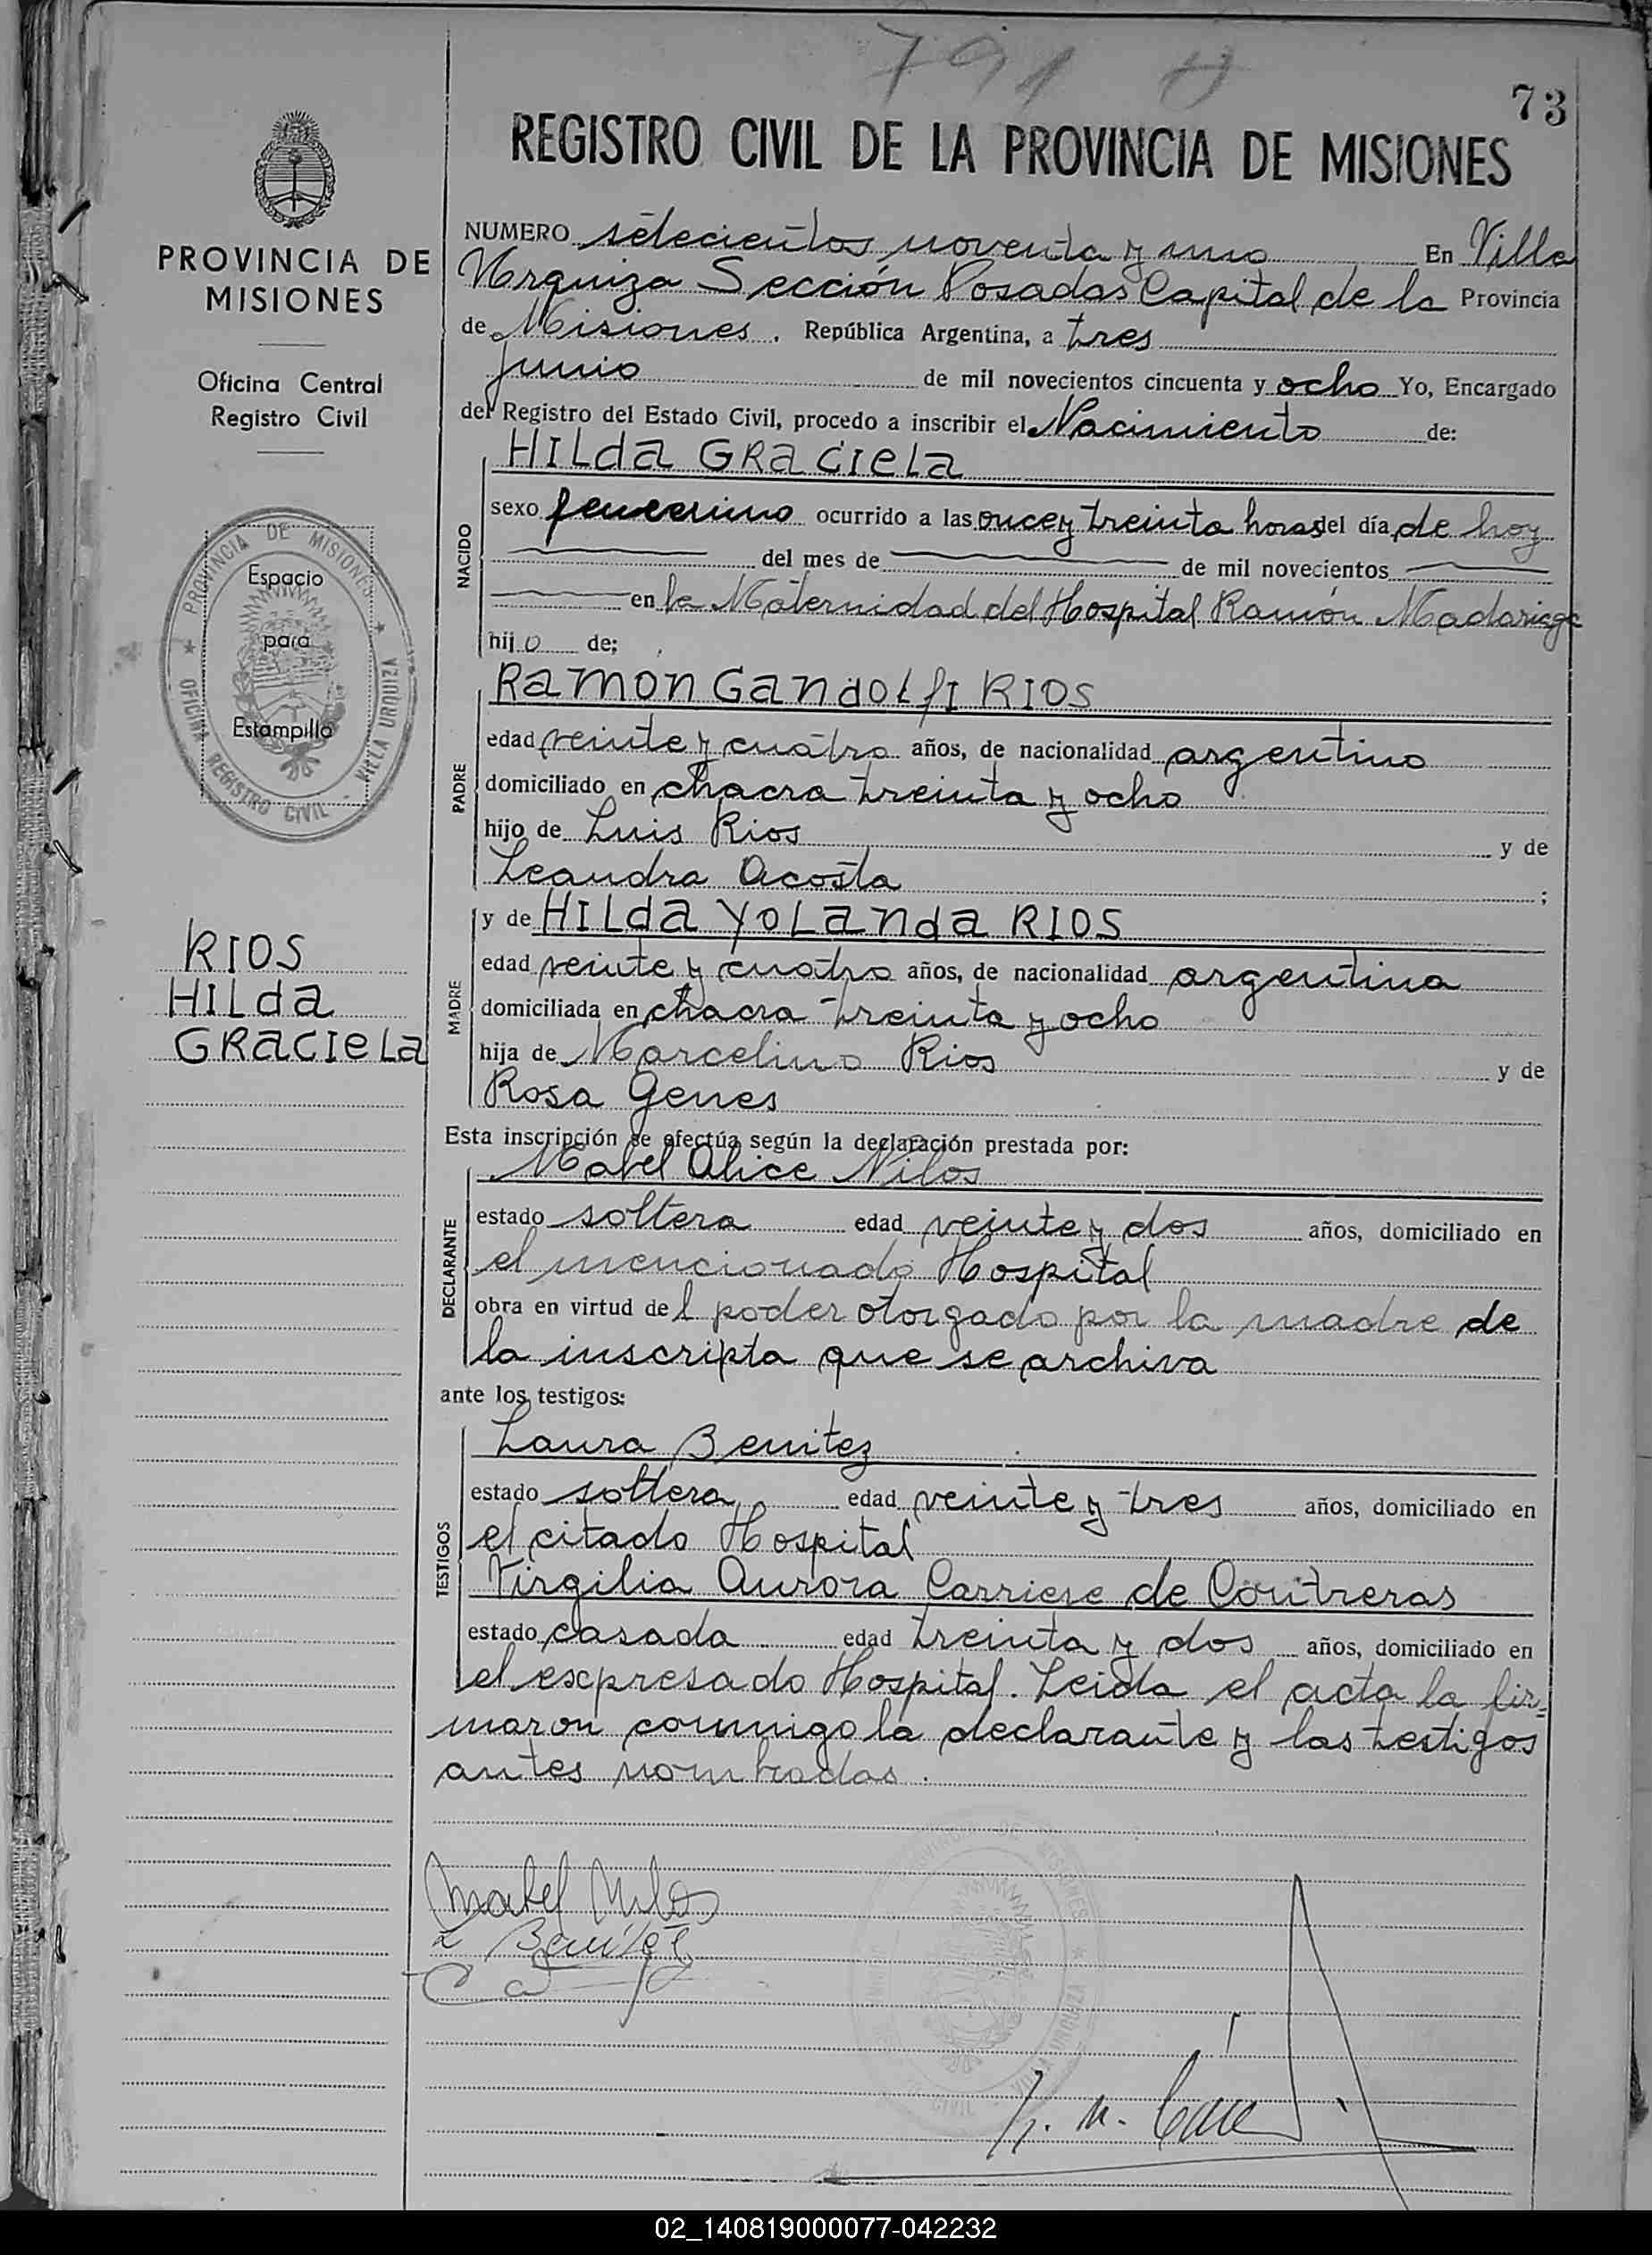 791
73
REGISTRO CIVIL DE LA PROVINCIA DE MISIONES
PROVINCIA DE
MISIONES
Oficina Central
Registro Civil
PROVINCIA DE MISIONES
OFICINA REGISTRO CIVIL - VILLA URQUIZA
Espacio
para
Estampilla
RIOS
HILda
GRacIeLa
NUMERO setecientos noventa y uno En Villa
Urquiza Sección Posadas Capital de la Provincia
de Misiones. República Argentina, a tres
junio de mil novecientos cincuenta y ocho Yo, Encargado
del Registro del Estado Civil, procedo a inscribir el Nacimiento de:
NACIDO
HILda GRacIeLa
sexo femenino ocurrido a las once y treinta horas del día de hoy
del mes de de mil novecientos
en la Maternidad del Hospital Ramón Madariaga
hijo de;
PADRE
Ramon GandoLfI RIOS
edad veinte y cuatro años, de nacionalidad argentino
domiciliado en chacra treinta y ocho
hijo de Luis Rios y de
Leandra Acosta ;
MADRE
y de HILda YoLanda RIOS
edad veinte y cuatro años, de nacionalidad argentina
domiciliada en chacra treinta y ocho
hija de Marcelino Rios y de
Rosa Genes
Esta inscripción se efectúa según la declaración prestada por:
DECLARANTE
Mabel Alice Nilos
estado soltera edad veinte y dos años, domiciliado en
el mencionado Hospital
obra en virtud del poder otorgado por la madre de
la inscripta que se archiva
ante los testigos:
TESTIGOS
Laura Benitez
estado soltera edad veinte y tres años, domiciliado en
el citado Hospital
Virgilia Aurora de Contreras
estado casada edad treinta y dos años, domiciliado en
el expresado Hospital. Leida el acta la fir=
maron conmigo la declarante y las testigos
antes nombradas.
Mabel Nilos
L Benitez
VILLA URQUIZA
CIVIL
02_140819000077-042232